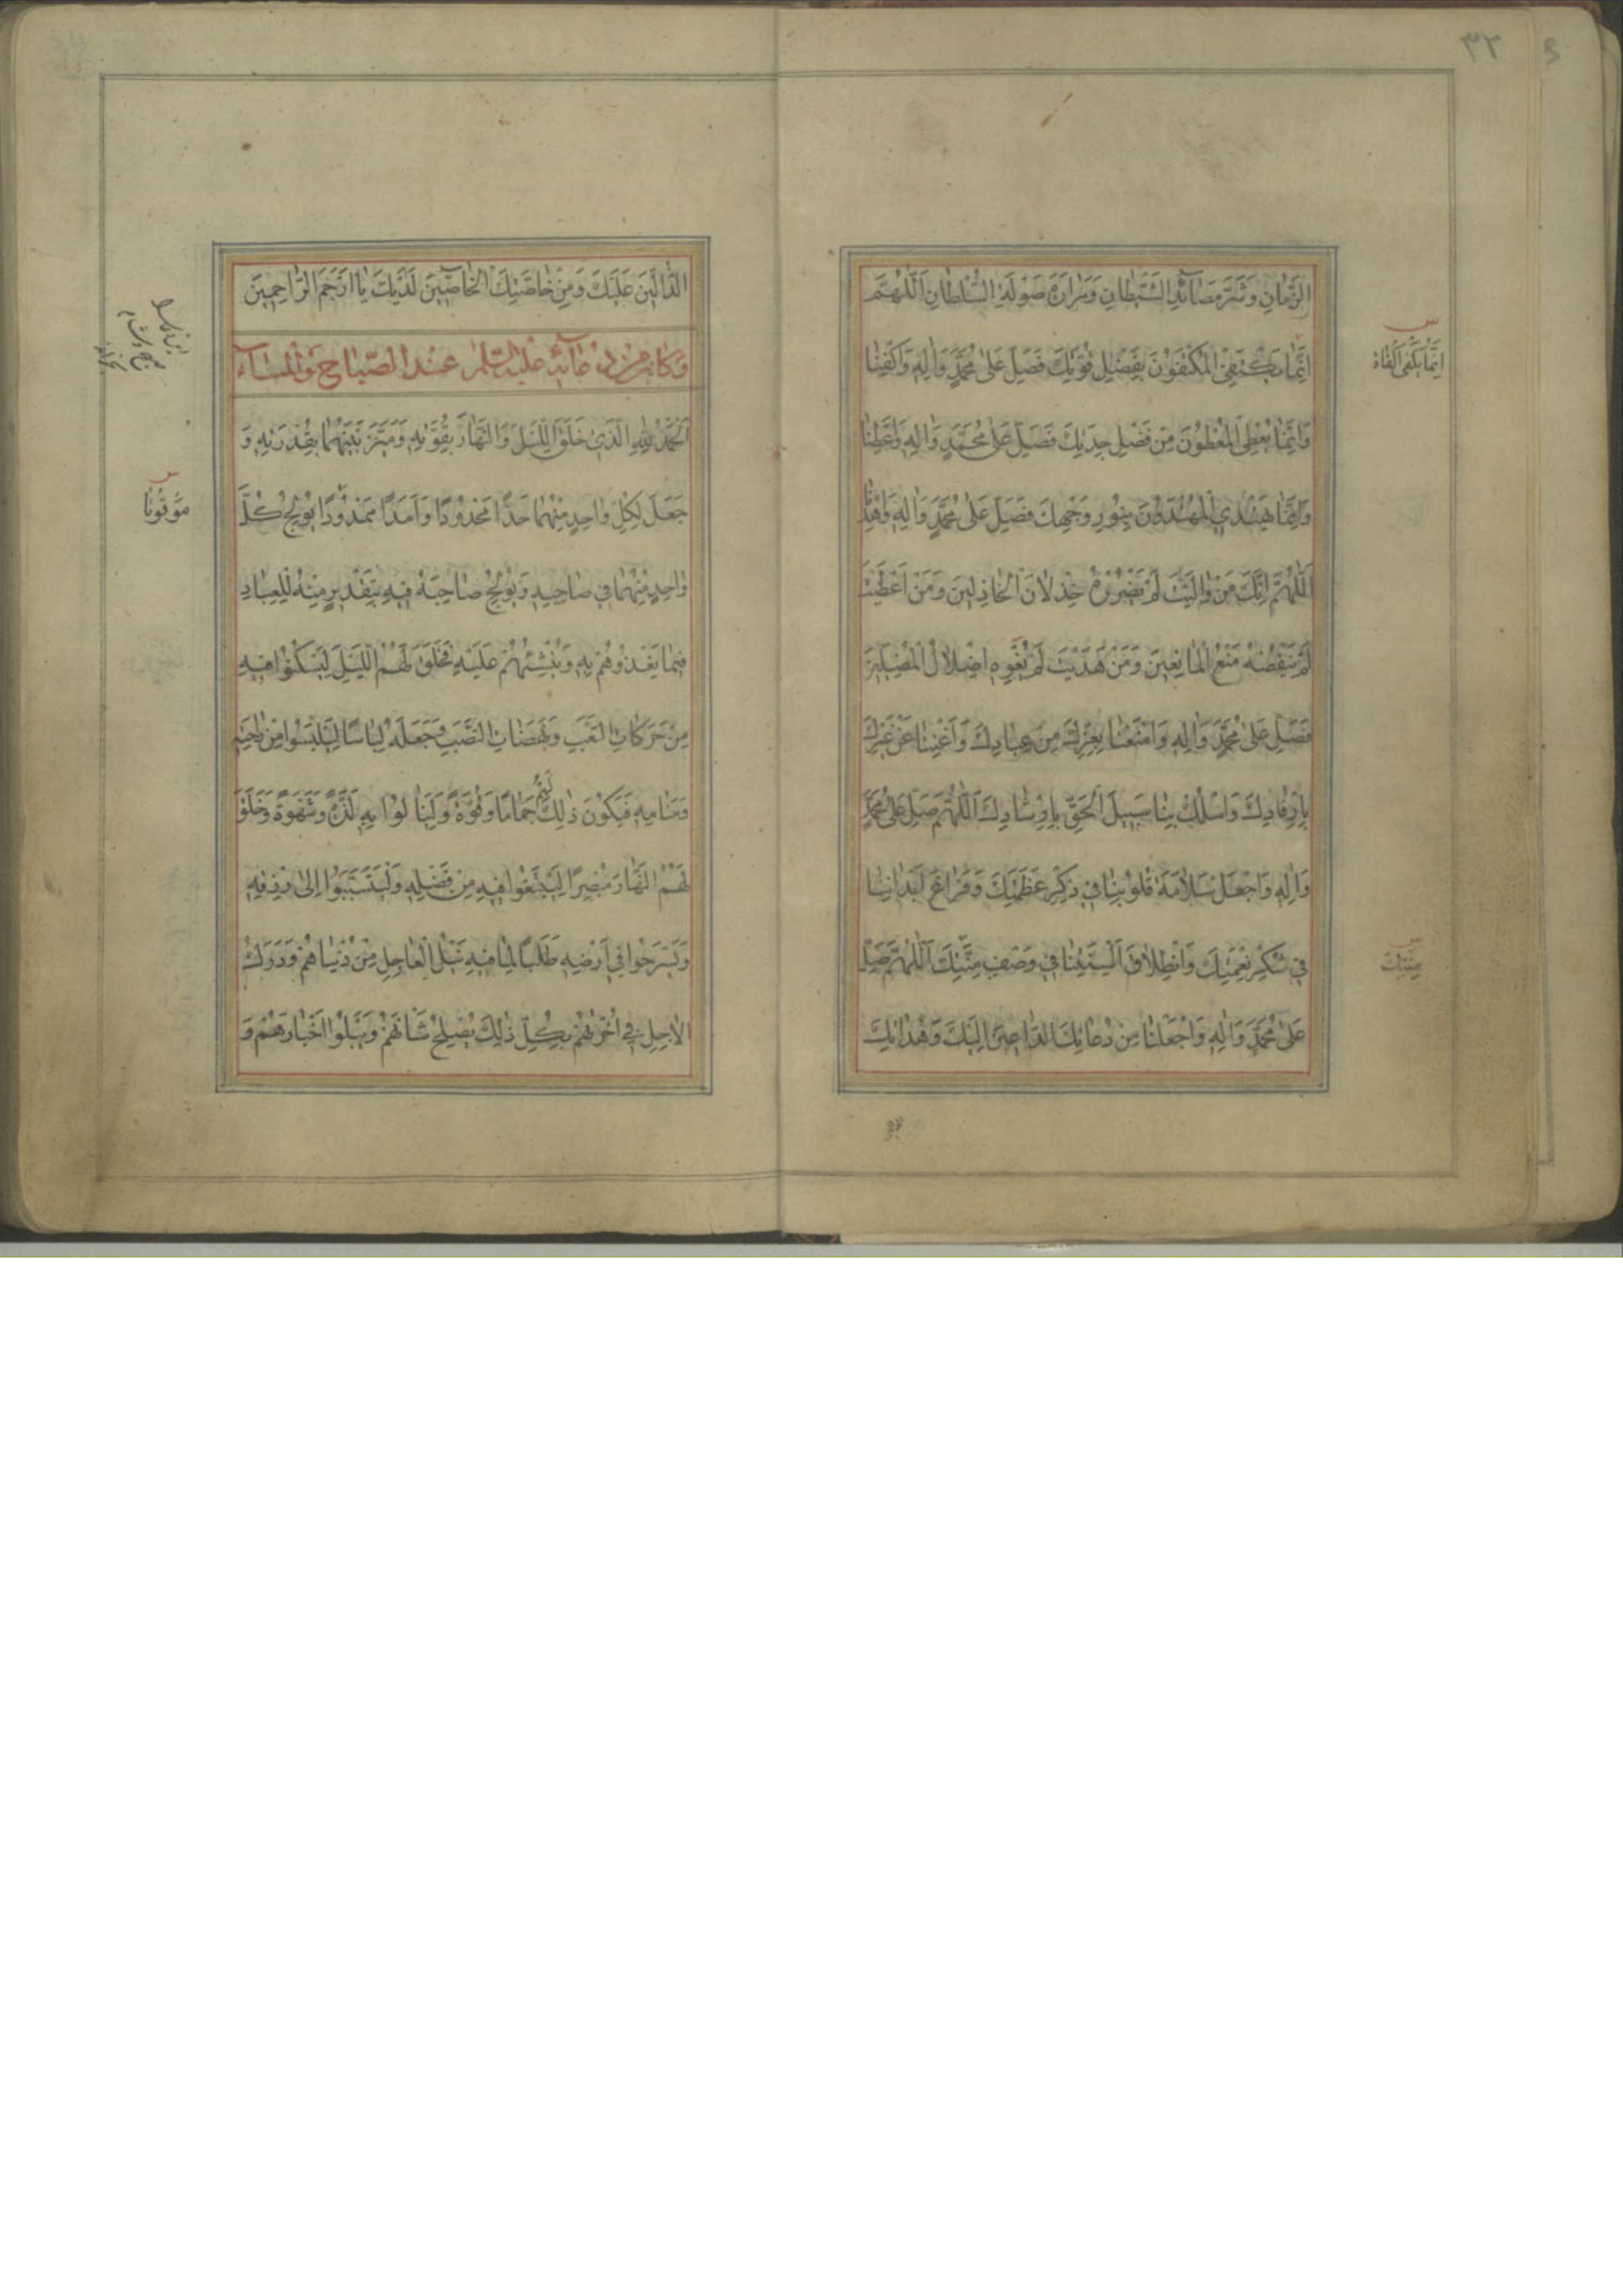 ٣٢
الزَّمانِ وَشَرَّ مَصآئِدِ الشَّيْطانِ وَمَرارَةَ صَوْلَةِ السُّلْطانِ اَللّٰهُمَّ
اِنَّما يَكْتَفِي الْمُكْتَفُونَ بِفَضْلِ قُوَّتِكَ فَصَلِّ عَلىٰ مُحَمَّدٍ وَاٰلِهِ وَاكْفِنا
وَاِنَّما يُعْطِي الْمُعْطُونَ مِنْ فَضْلِ جِدَتِكَ فَصَلِّ عَلىٰ مُحَمَّدٍ وَاٰلِهِ وَاَعْطِنا
وَاِنَّما يَهْتَدِي الْمُهْتَدُونَ بِنُورِ وَجْهِكَ فَصَلِّ عَلىٰ مُحَمَّدٍ وَاٰلِهِ وَاهْدِنا
اَللّٰهُمَّ اِنَّكَ مَنْ والَيْتَ لَمْ يَضْرُرْهُ خِذْلانُ الْخاذِلينَ وَمَنْ اَعْطَيْتَ
لَمْ يَنْقُصْهُ مَنْعُ الْمانِعينَ وَمَنْ هَدَيْتَ لَمْ يُغْوِهِ اِضْلالُ الْمُضِلّينَ
فَصَلِّ عَلىٰ مُحَمَّدٍ وَاٰلِهِ وَامْنَعْنا بِعِزِّكَ مِنْ عِبادِكَ وَاَغْنِنا عَنْ غَيْرِكَ
بِاِرْفادِكَ وَاسْلُكْ بِنا سَبيلَ الْحَقِّ بِاِرْشادِكَ اَللّٰهُمَّ صَلِّ عَلىٰ مُحَمَّدٍ
وَاٰلِهِ وَاجْعَلْ سَلامَةَ قُلُوبِنا في ذِكْرِ عَظَمَتِكَ وَفَراغَ اَبْدانِنا
في شُكْرِ نِعْمَتِكَ وَانْطِلاقَ اَلْسِنَتِنا في وَصْفِ مِنَّتِكَ اَللّٰهُمَّ صَلِّ
عَلىٰ مُحَمَّدٍ وَاٰلِهِ وَاجْعَلْنا مِنْ دُعاتِكَ الدّاعينَ اِلَيْكَ وَهُداتِكَ
س
اِنَّما يَكْفِي الْكُفاةُ
س
مِنَنِكَ
الدّالّينَ عَلَيْكَ وَمِنْ خاصَّتِكَ الْخاصّينَ لَدَيْكَ يا اَرْحَمَ الرّاحِمينَ
وَكانَ مِنْ دُعآئِهِ عَلَيْهِ السَّلٰمُ عِنْدَ الصَّباحِ وَالْمَسآءِ
اَلْحَمْدُ لِلّٰهِ الَّذي خَلَقَ اللَّيْلَ وَالنَّهارَ بِقُوَّتِهِ وَمَيَّزَ بَيْنَهُما بِقُدْرَتِهِ وَ
جَعَلَ لِكُلِّ واحِدٍ مِنْهُما حَدًّا مَحْدُودًا وَاَمَدًا مَمْدُودًا يُولِجُ كُلَّ
واحِدٍ مِنْهُما في صاحِبِهِ وَيُولِجُ صاحِبَهُ فيهِ بِتَقْديرٍ مِنْهُ لِلْعِبادِ
فيما يَغْذُوهُمْ بِهِ وَيُنْشِئُهُمْ عَلَيْهِ فَخَلَقَ لَهُمُ اللَّيْلَ لِيَسْكُنُوا فيهِ
مِنْ حَرَكاتِ التَّعَبِ وَنَهَضاتِ النَّصَبِ وَجَعَلَهُ لِباسًا لِيَلْبَسُوا مِنْ راحَتِهِ
وَمَنامِهِ فَيَكُونَ ذٰلِكَ لَهُمْ جَمامًا وَقُوَّةً وَلِيَنالُوا بِهِ لَذَّةً وَشَهْوَةً وَخَلَقَ
لَهُمُ النَّهارَ مُبْصِرًا لِيَبْتَغُوا فيهِ مِنْ فَضْلِهِ وَلِيَتَسَبَّبُوا اِلىٰ رِزْقِهِ
وَيَسْرَحُوا في اَرْضِهِ طَلَبًا لِما فيهِ نَيْلُ الْعاجِلِ مِنْ دُنْياهُمْ وَدَرَكُ
الْاٰجِلِ في اُخْرٰيهُمْ بِكُلِّ ذٰلِكَ يُصْلِحُ شَاْنَهُمْ وَيَبْلُو اَخْبارَهُمْ وَ
س
مَوْقُوتًا